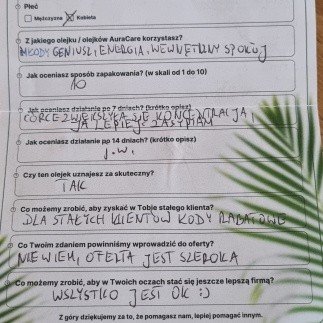 Płeć
Mężczyzna Kobieta
Z jakiego olejku / olejków AuraCare korzystasz?
MŁODY GENIUSZ, ENERGIA, WEWNĘTRZNY SPOKÓJ
Jak oceniasz sposób zapakowania? (w skali od 1 do 10)
10
Jak oceniasz działanie po 7 dniach? (krótko opisz)
CÓRCE ZWIĘKSZYŁA SIĘ KONCENTRACJA,
JA LEPIEJ ZASYPIAM
Jak oceniasz działanie pp 14 dniach? (krótko opisz)
j.w.
Czy ten olejek uznajesz za skuteczny?
TAK
Co możemy zrobić, aby zyskać w Tobie stałego klienta?
DLA STAŁYCH KLIENTÓW KODY RABATOWE
Co Twoim zdaniem powinniśmy wprowadzić do oferty?
NIE WIEM, OFERTA JEST SZEROKA
Co możemy zrobić, aby w Twoich oczach stać się jeszcze lepszą firmą?
WSZYSTKO JEST OK :)
Z góry dziękujemy za to, że pomagasz nam, lepiej pomagać innym.